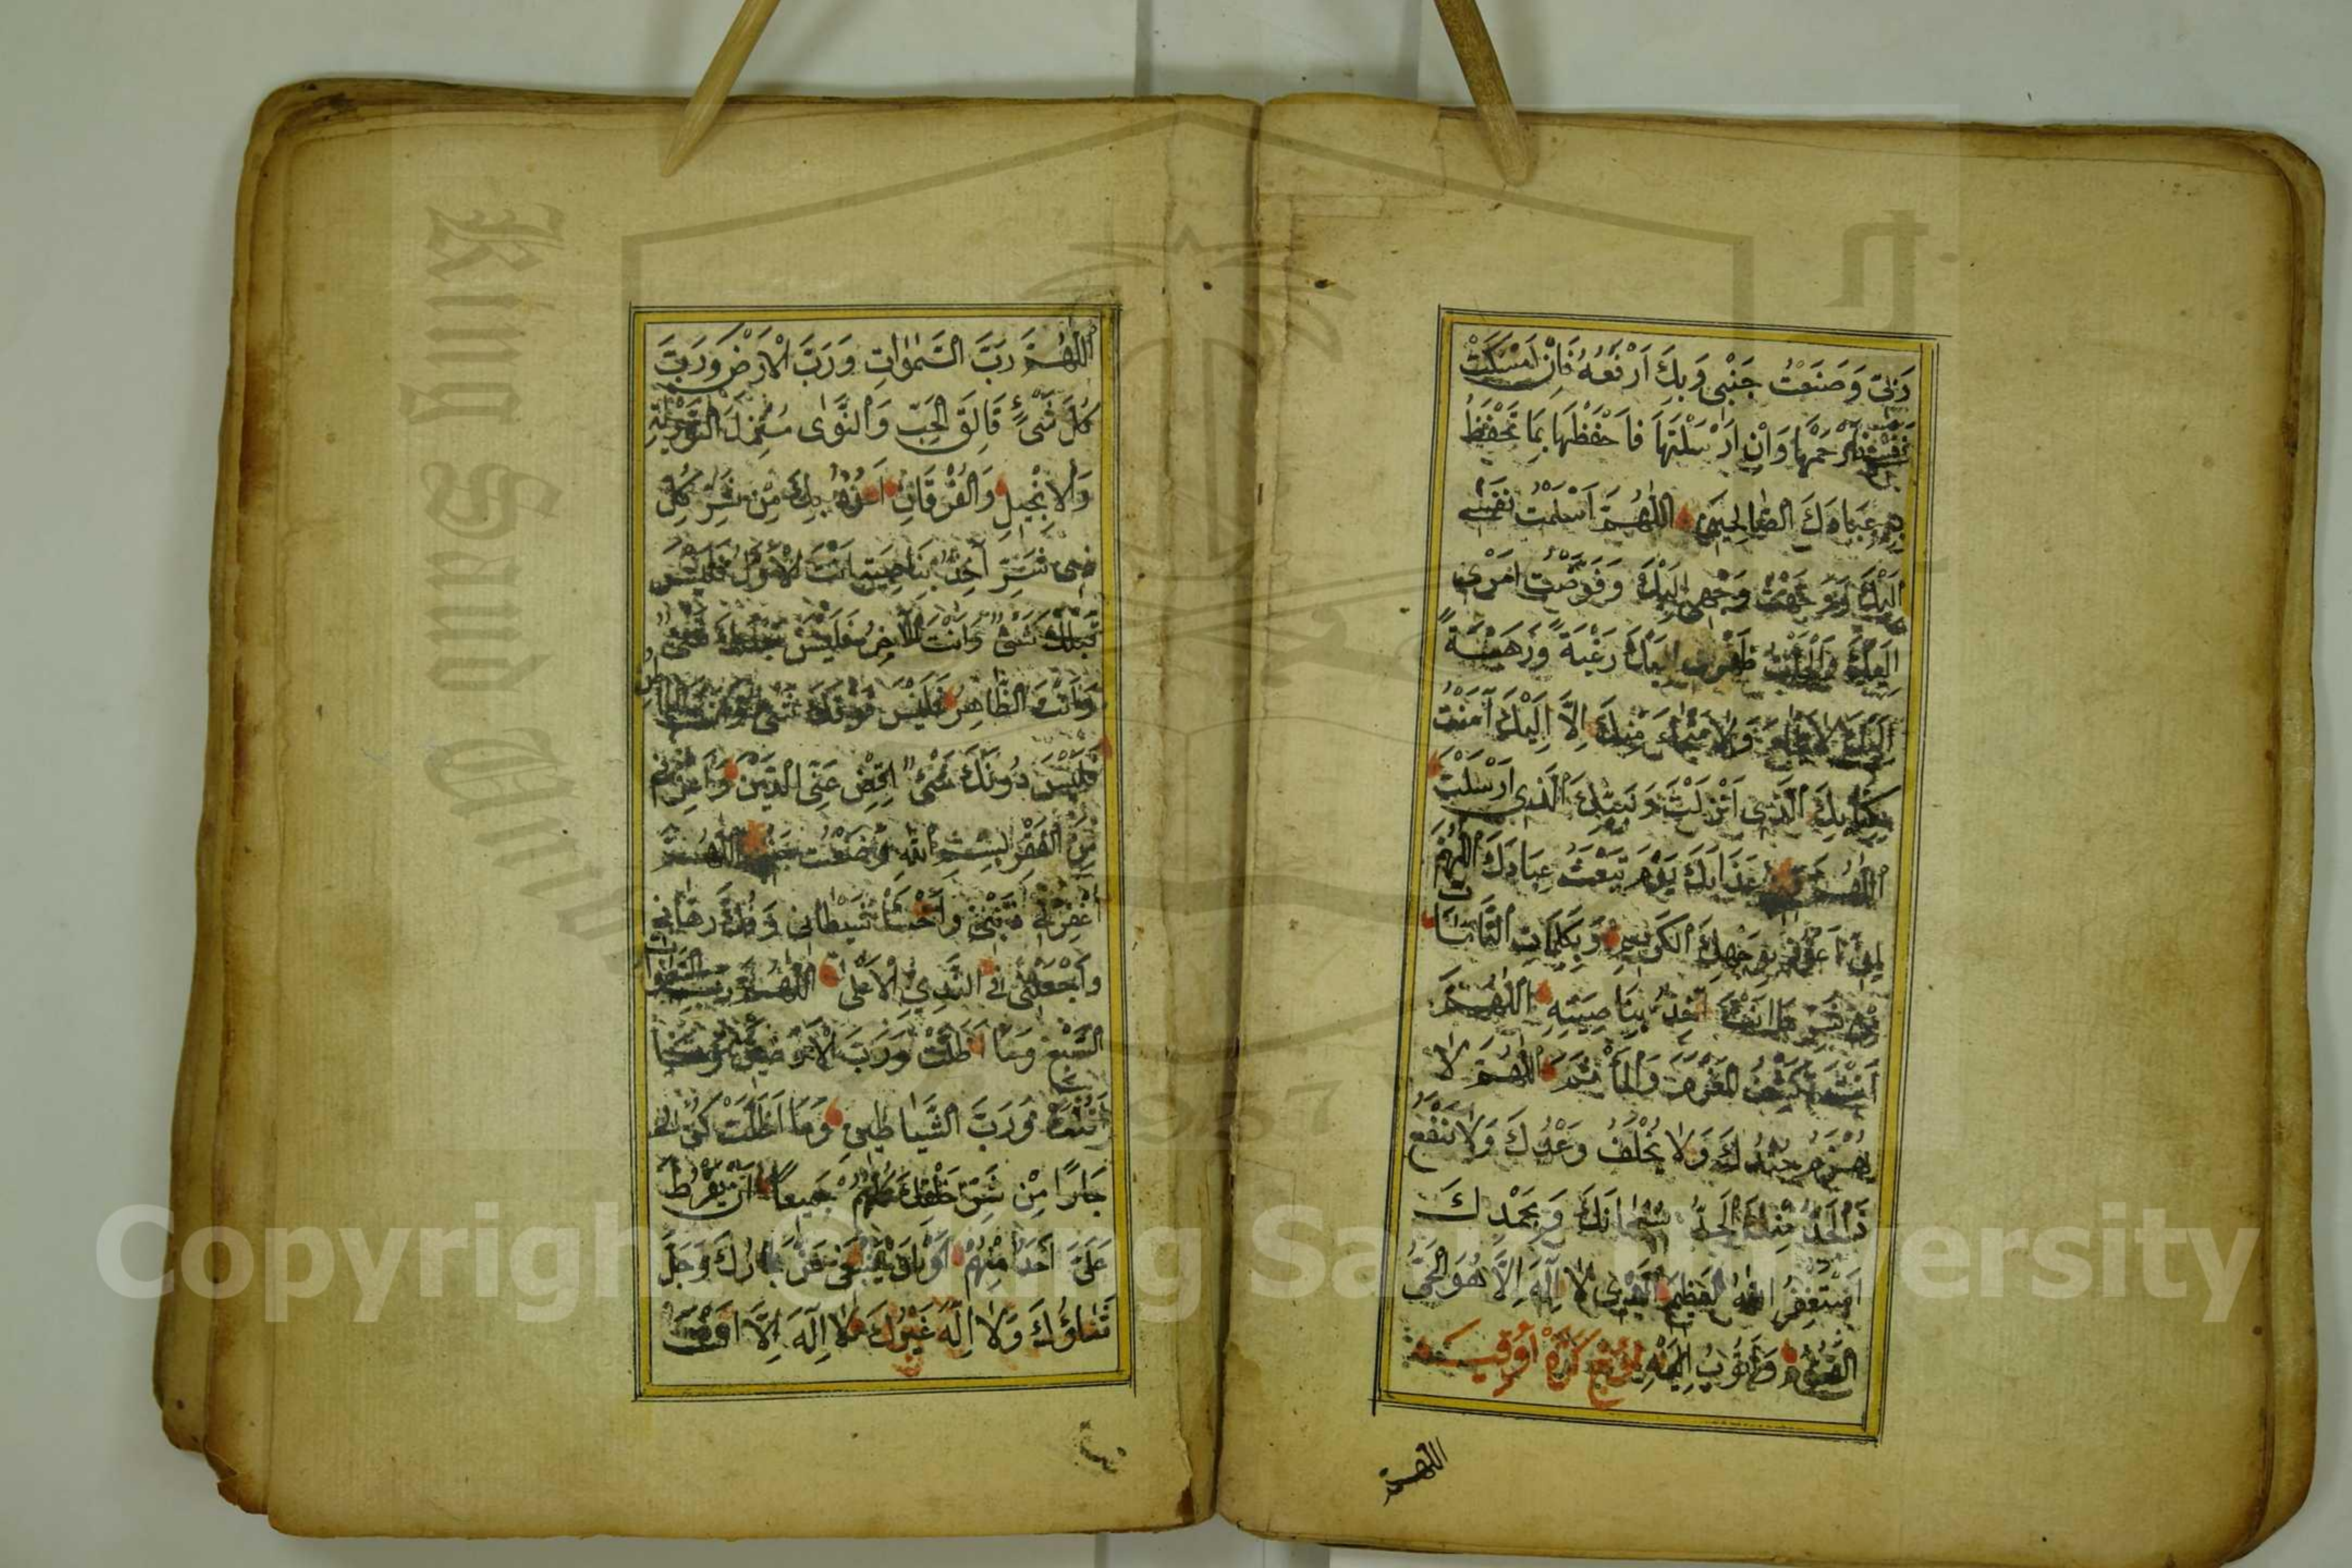 رَبِّى وَضَعْتُ جَنْبِى وَبِكَ اَرْفَعُهُ فَاِنْ اَمْسَكْتَ
نَفْسِى فَارْحَمْهَا وَاِنْ اَرْسَلْتَهَا فَاحْفَظْهَا بِمَا تَحْفَظُ
بِهِ عِبَادَكَ الصَّالِحِينَ اَللّٰهُمَّ اَسْلَمْتُ نَفْسِى
اِلَيْكَ وَوَجَّهْتُ وَجْهِى اِلَيْكَ وَفَوَّضْتُ اَمْرِى
اِلَيْكَ وَاَلْجَأْتُ ظَهْرِى اِلَيْكَ رَغْبَةً وَرَهْبَةً
اِلَيْكَ لَا مَلْجَأَ وَلَا مَنْجَأَ مِنْكَ اِلَّا اِلَيْكَ آمَنْتُ
بِكِتَابِكَ الَّذِى اَنْزَلْتَ وَنَبِيِّكَ الَّذِى اَرْسَلْتَ
اَللّٰهُمَّ قِنِى عَذَابَكَ يَوْمَ تَبْعَثُ عِبَادَكَ اَللّٰهُمَّ
اِنِّى اَعُوذُ بِوَجْهِكَ الْكَرِيمِ وَبِكَلِمَاتِكَ التَّامَّاتِ
مِنْ شَرِّ مَا اَنْتَ آخِذٌ بِنَاصِيَتِهِ اَللّٰهُمَّ
اَنْتَ تَكْشِفُ الْمَغْرَمَ وَالْمَأْثَمَ اَللّٰهُمَّ لَا
يُهْزَمُ جُنْدُكَ وَلَا يُخْلَفُ وَعْدُكَ وَلَا يَنْفَعُ
ذَا الْجَدِّ مِنْكَ الْجَدُّ سُبْحَانَكَ وَبِحَمْدِكَ
اَسْتَغْفِرُ اللّٰهَ الْعَظِيمَ الَّذِى لَا اِلٰهَ اِلَّا هُوَ الْحَىُّ
الْقَيُّومُ وَاَتُوبُ اِلَيْهِ
اللهم
اَللّٰهُمَّ رَبَّ السَّمٰوَاتِ وَرَبَّ الْاَرْضِ وَرَبَّ
كُلِّ شَىْءٍ فَالِقَ الْحَبِّ وَالنَّوٰى مُنْزِلَ التَّوْرٰيةِ
وَالْاِنْجِيلِ وَالْفُرْقَانِ اَعُوذُ بِكَ مِنْ شَرِّ كُلِّ
ذِى شَرٍّ آخِذٌ بِنَاصِيَتِهِ اَنْتَ الْاَوَّلُ فَلَيْسَ
قَبْلَكَ شَىْءٌ وَاَنْتَ الْآخِرُ فَلَيْسَ بَعْدَكَ شَىْءٌ
وَاَنْتَ الظَّاهِرُ فَلَيْسَ فَوْقَكَ شَىْءٌ وَاَنْتَ الْبَاطِنُ
فَلَيْسَ دُونَكَ شَىْءٌ اِقْضِ عَنِّى الدَّيْنَ وَاَغْنِنِى
مِنَ الْفَقْرِ بِسْمِ اللّٰهِ وَضَعْتُ جَنْبِى اَللّٰهُمَّ
اغْفِرْ لِى ذَنْبِى وَاخْسَأْ شَيْطَانِى وَفُكَّ رِهَانِى
وَاجْعَلْنِى فِى النَّدِىِّ الْاَعْلٰى اَللّٰهُمَّ رَبَّ السَّمٰوَاتِ
السَّبْعِ وَمَا اَظَلَّتْ وَرَبَّ الْاَرَضِينَ وَمَا
وَرَبَّ الشَّيَاطِينِ وَمَا اَضَلَّتْ كُنْ لِى
جَارًا مِنْ شَرِّ خَلْقِكَ كُلِّهِمْ جَمِيعًا اَنْ يَفْرُطَ
عَلَىَّ اَحَدٌ مِنْهُمْ اَوْ اَنْ يَبْغٰى عَزَّ جَارُكَ وَجَلَّ
ثَنَاؤُكَ وَلَا اِلٰهَ غَيْرُكَ لَا اِلٰهَ اِلَّا اَنْتَ
Copyright © King Saud University
King Saud University
1957